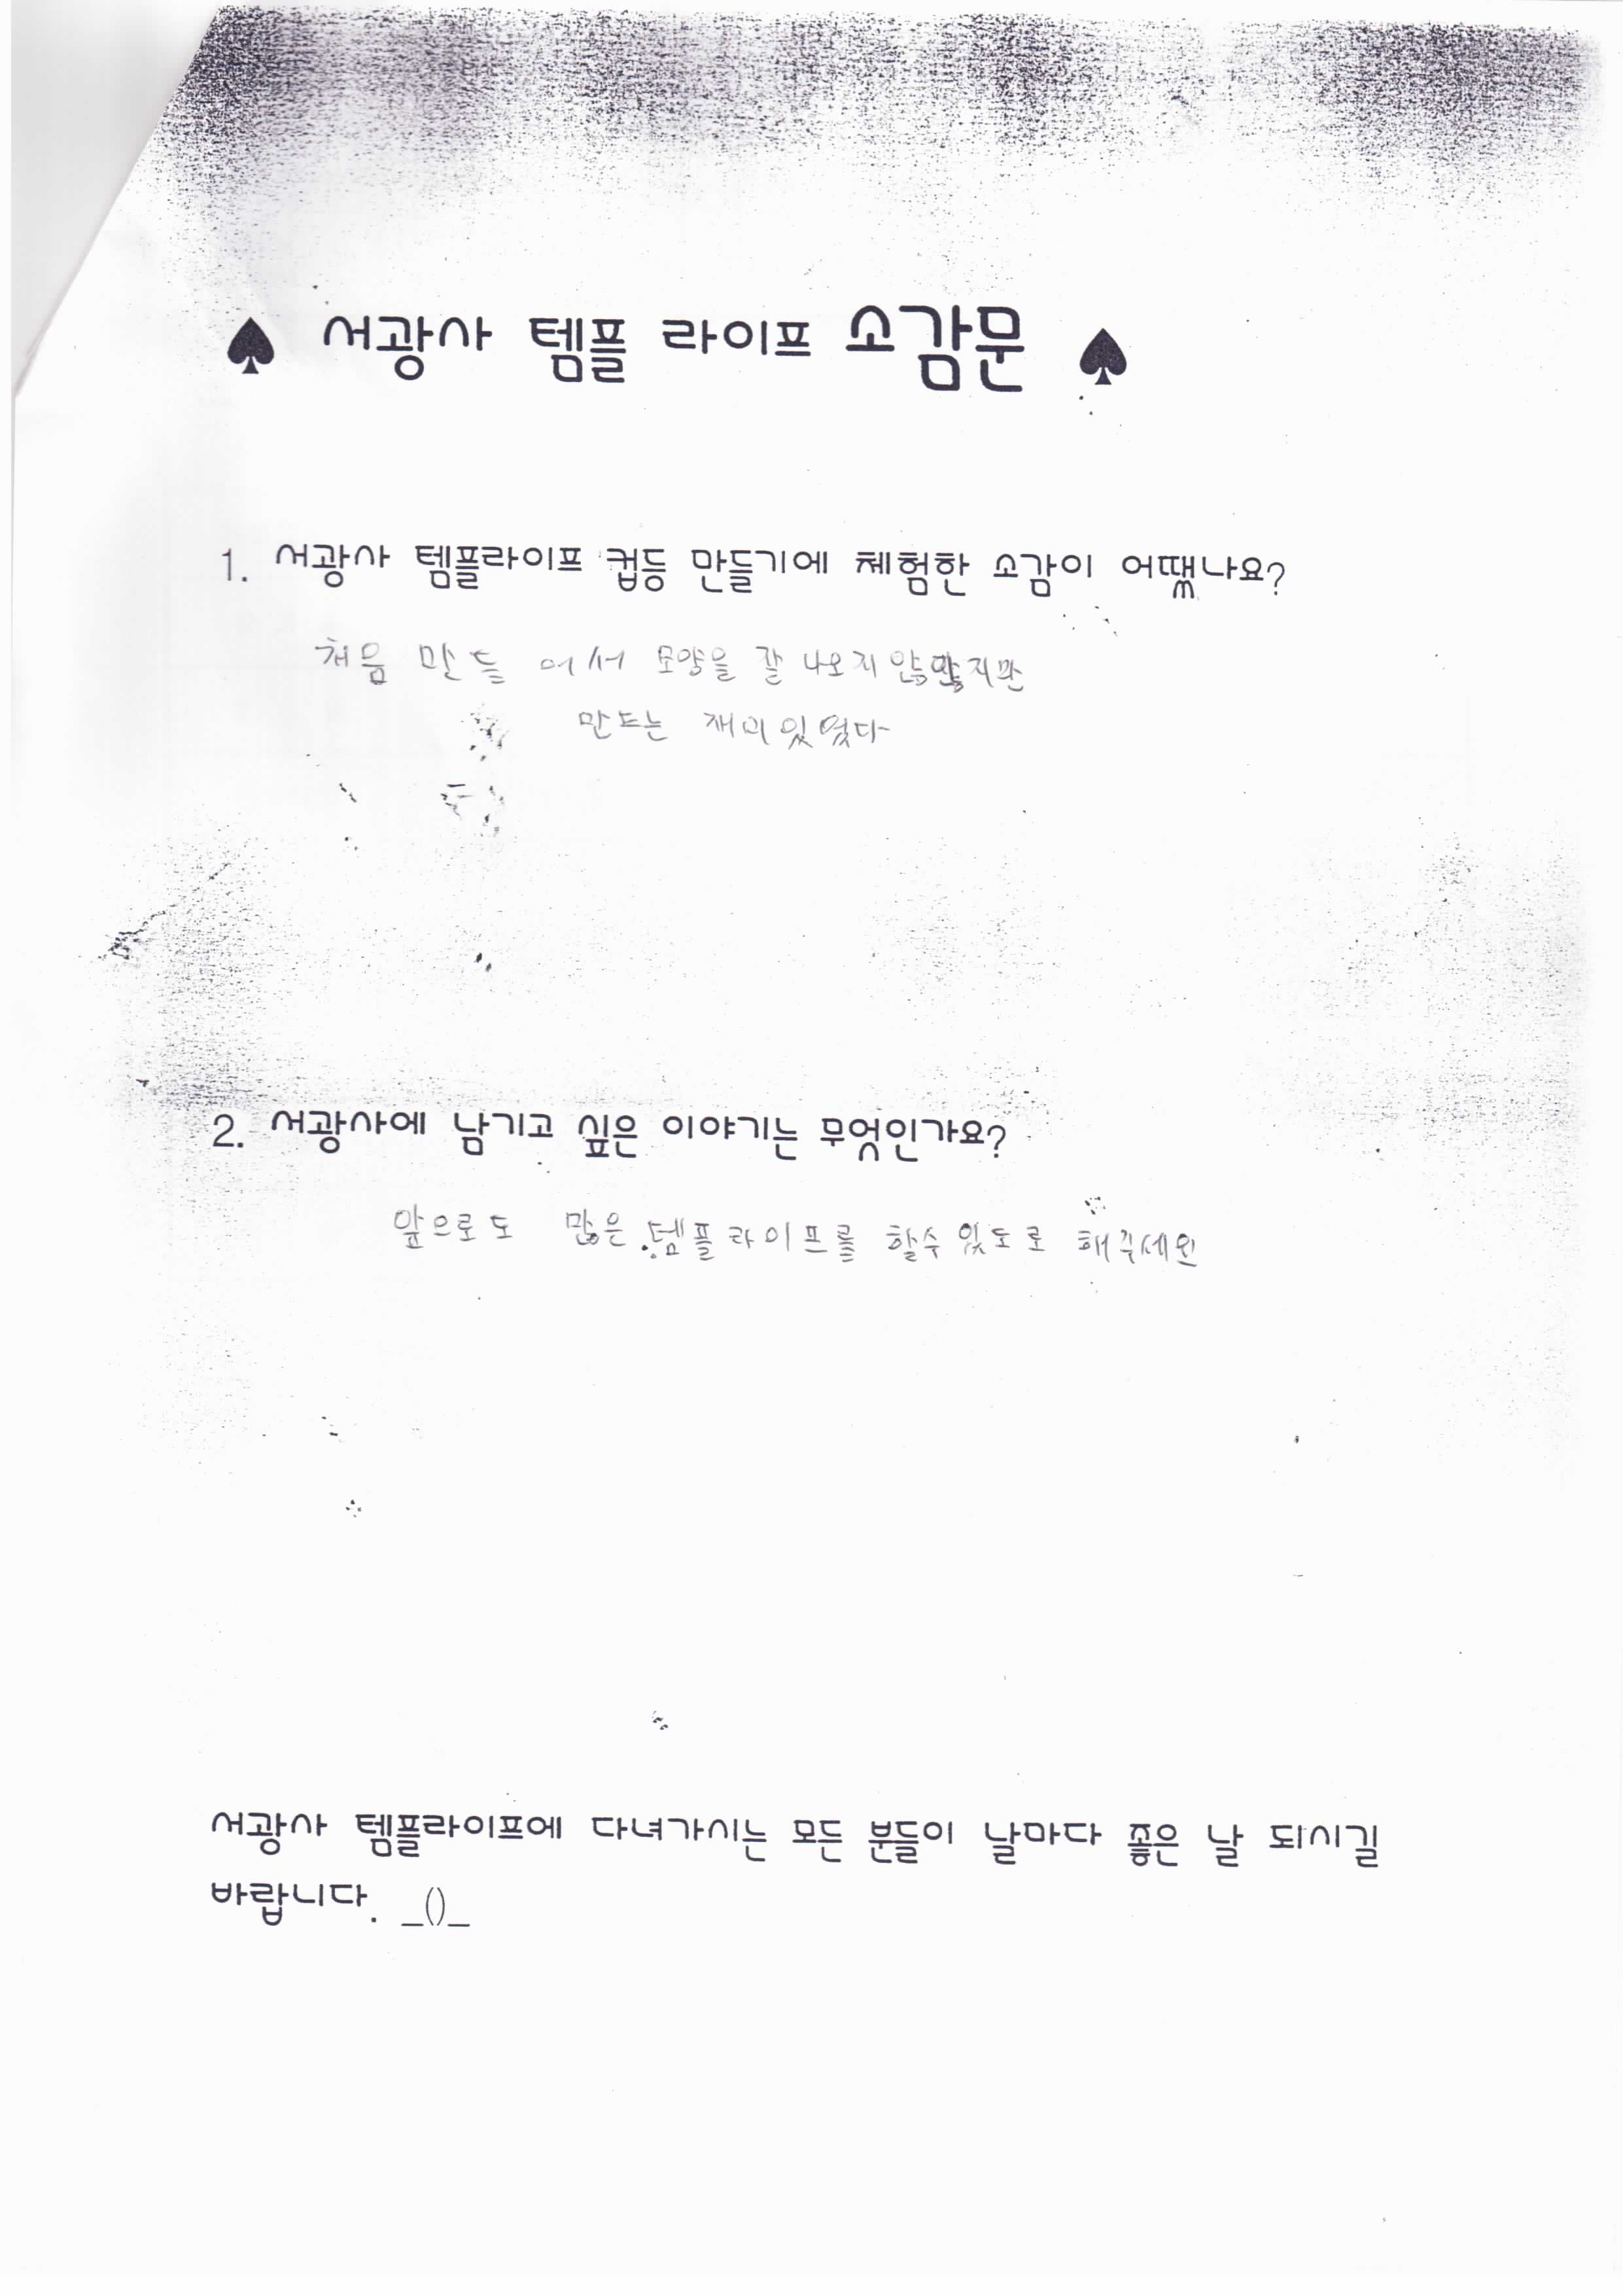 ♠ 서광사 템플 라이프 소감문 ♠
1. 서광사 템플라이프 컵등 만들기에 체험한 소감이 어땠나요?
처음 만들 어서 모양을 잘 나오지 않지만
만드는 재미있었다
2. 서광사에 남기고 싶은 이야기는 무엇인가요?
앞으로도 많은 템플라이프를 할수있도로 해주세요
서광사 템플라이프에 다녀가시는 모든 분들이 날마다 좋은 날 되시길
바랍니다. _()_